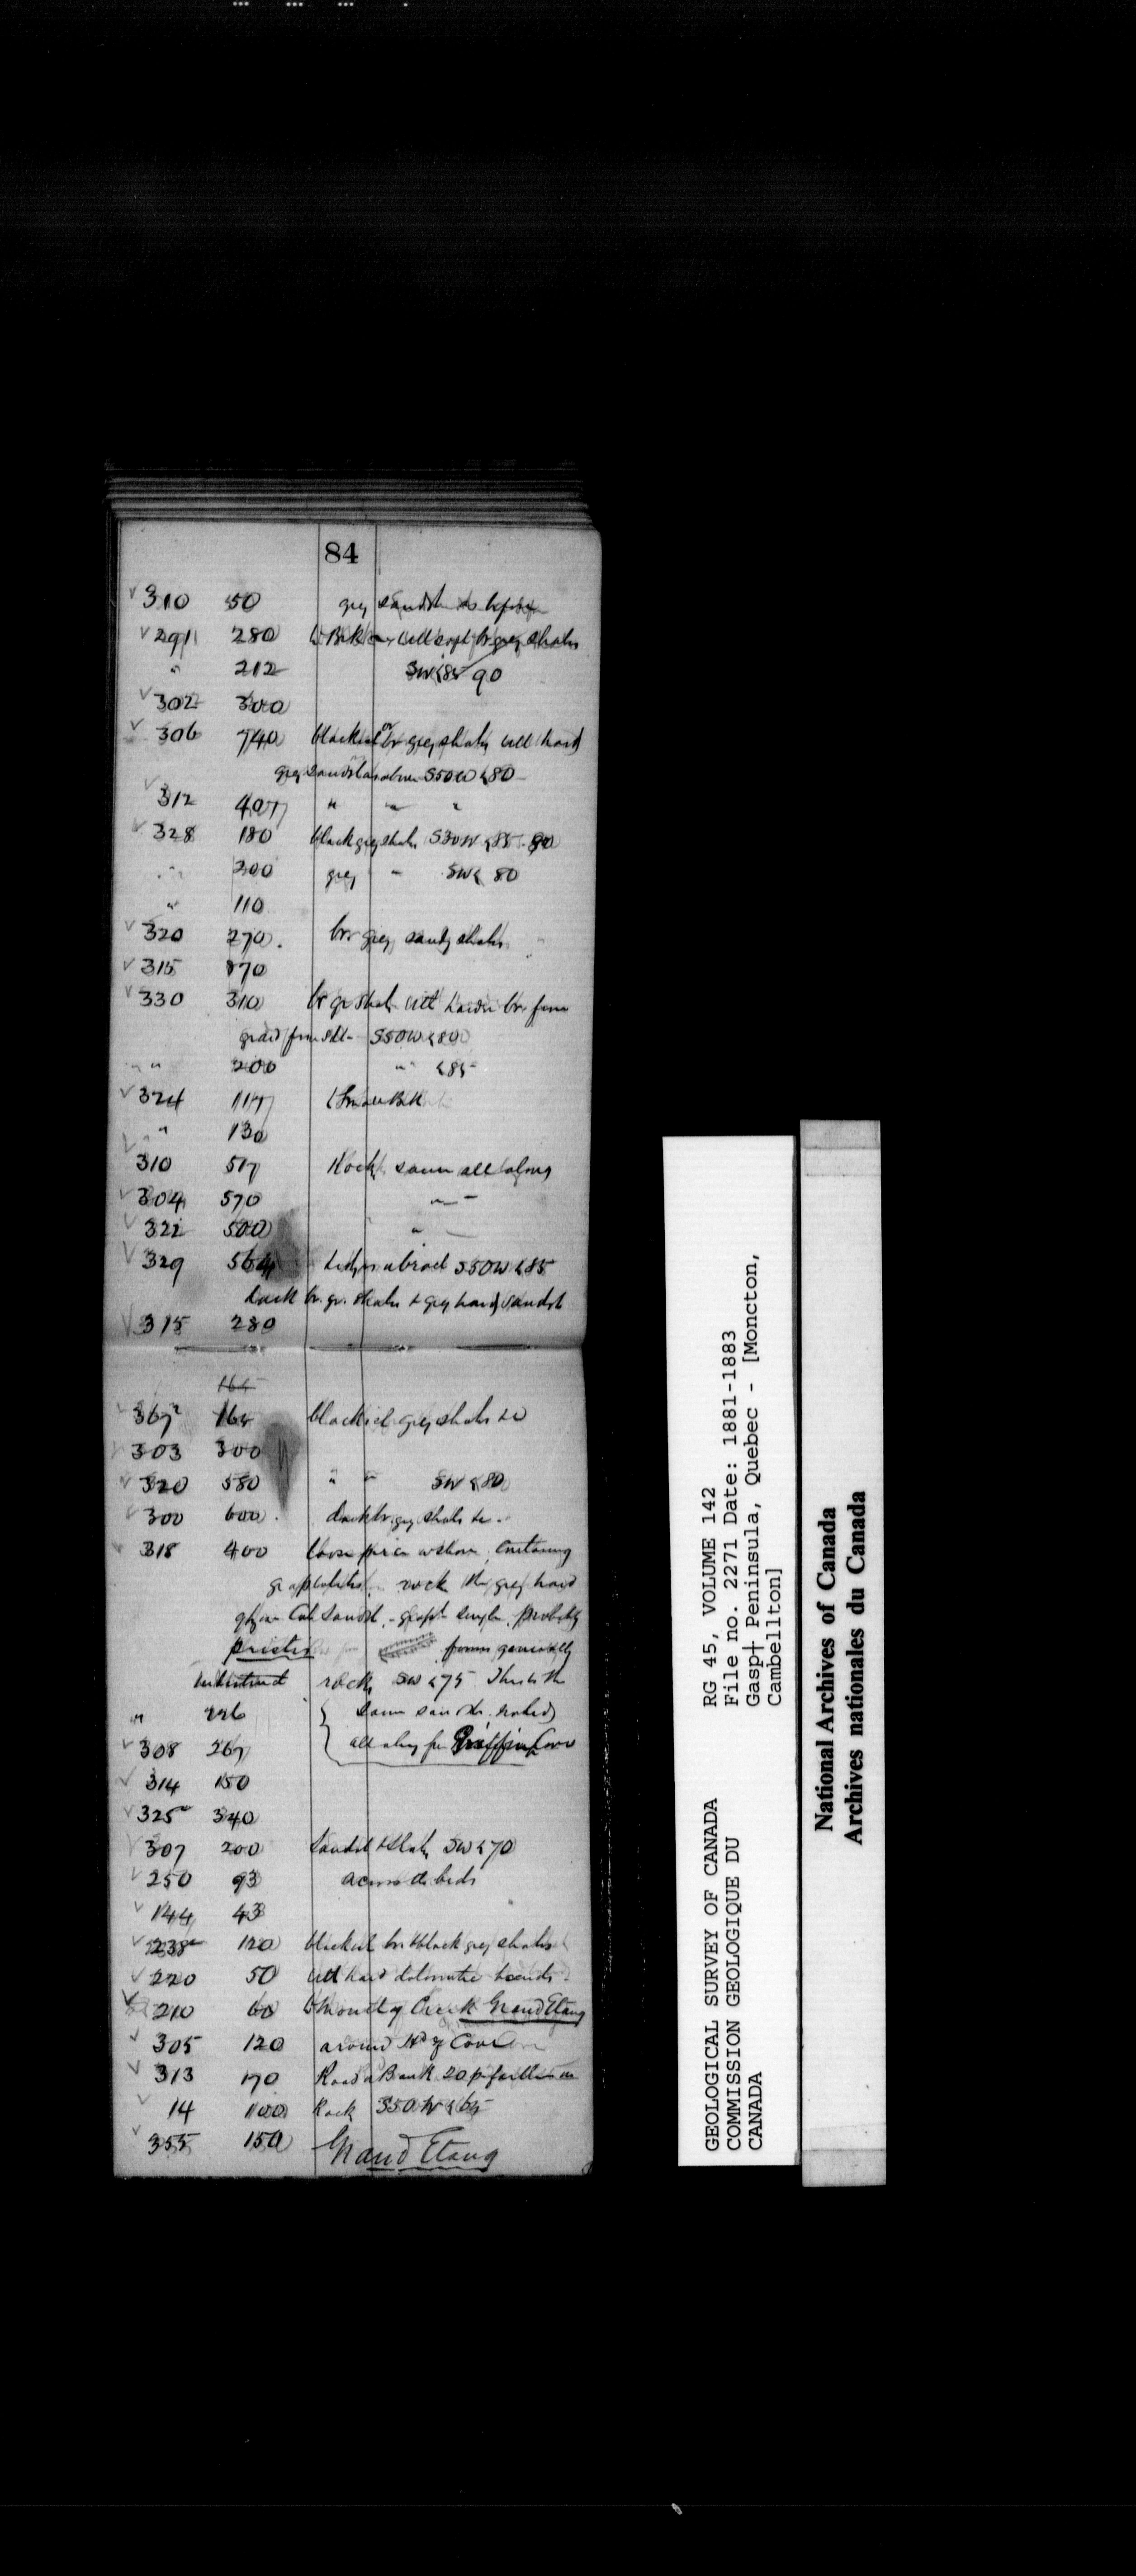 84
310 50 grey sandst as before
291 280 to Bk over with soft br grey shales
" 212 SW<85 90
302 300
306 740 blackish or br grey shales with hard
grey sandst as above S50W <80
312 407 " " "
328 180 black grey shales S30W <85-90
" 200 grey " SW< 80
" 110
320 270. br. grey sandy shales
315 870
330 310 br gr shales with harder br fine
graind S50W <80
" 200 " <85
324 117 to Small Bk
" 130
310 517 Rocks same all along
304 570 "
322 500 "
329 564 S50W <85
Dark br. gr. shales & grey hard sandst
315 280
165
307 165 blackish grey shales &c
303 300
320 580 " " SW <80
300 600. dark br. grey shales &c.
318 400 loose piece on shore, containing
graptolites. rock the grey hard
Cal Sandst. - grapt single. probably
pristis forms generally
indistinct rocks SW <75 This is the
" 226 same sandst. noted
308 267 all along from Griffin Cove
314 150
325 340
307 200 Sandst & Shales SW <70
250 93 across the beds
144 43
238 120 blackish br & black grey shales
220 50 with hard dolomitic bands
210 60 to mouth of Creek Grand Etang
305 120 around Hd of Cove
313 170 Road & Bank 20 p farther in
14 100 Rock S50W <65
355 150 Grand Etang
GEOLOGICAL SURVEY OF CANADA
COMMISSION GEOLOGIQUE DU
CANADA
RG 45, VOLUME 142
File no. 2271 Date: 1881-1883
Gasp† Peninsula, Quebec - [Moncton,
Cambellton]
National Archives of Canada
Archives nationales du Canada